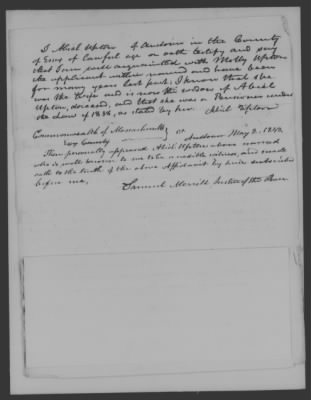 I Abiel Upton of Andover in the County
of Essex of lawful age on oath testify and say
that I am well acquainted with Molly Upton
the applicant within named and have been
for many years last past; I know that she
was the wife and is now the widow of Abiel
Upton, deceased, and that she was a Pensioner under
the Law of 1838, as stated by her. Abiel Upton
Commonwealth of Massachusetts
Essex County ss Andover May 2. 1843
Then personally appeared Abiel Upton above named
who is well known to me to be a credible witness, and made
oath to the truth of the above Affidavit by him subscribed
before me,
Samuel Merrill Justice of the Peace